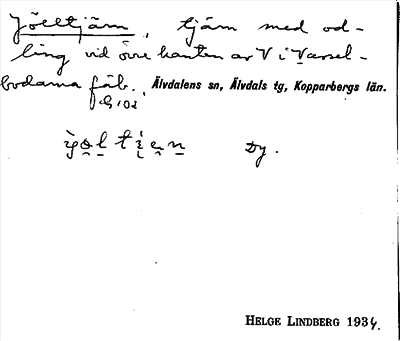 Jölltjärn, tjärn med od-
ling vid övre kanten av V i Vassel-
bodarna fäb., Älvdalens sn, Älvdals tg, Kopparbergs län.
Dy.
HELGE LINDBERG 1934.